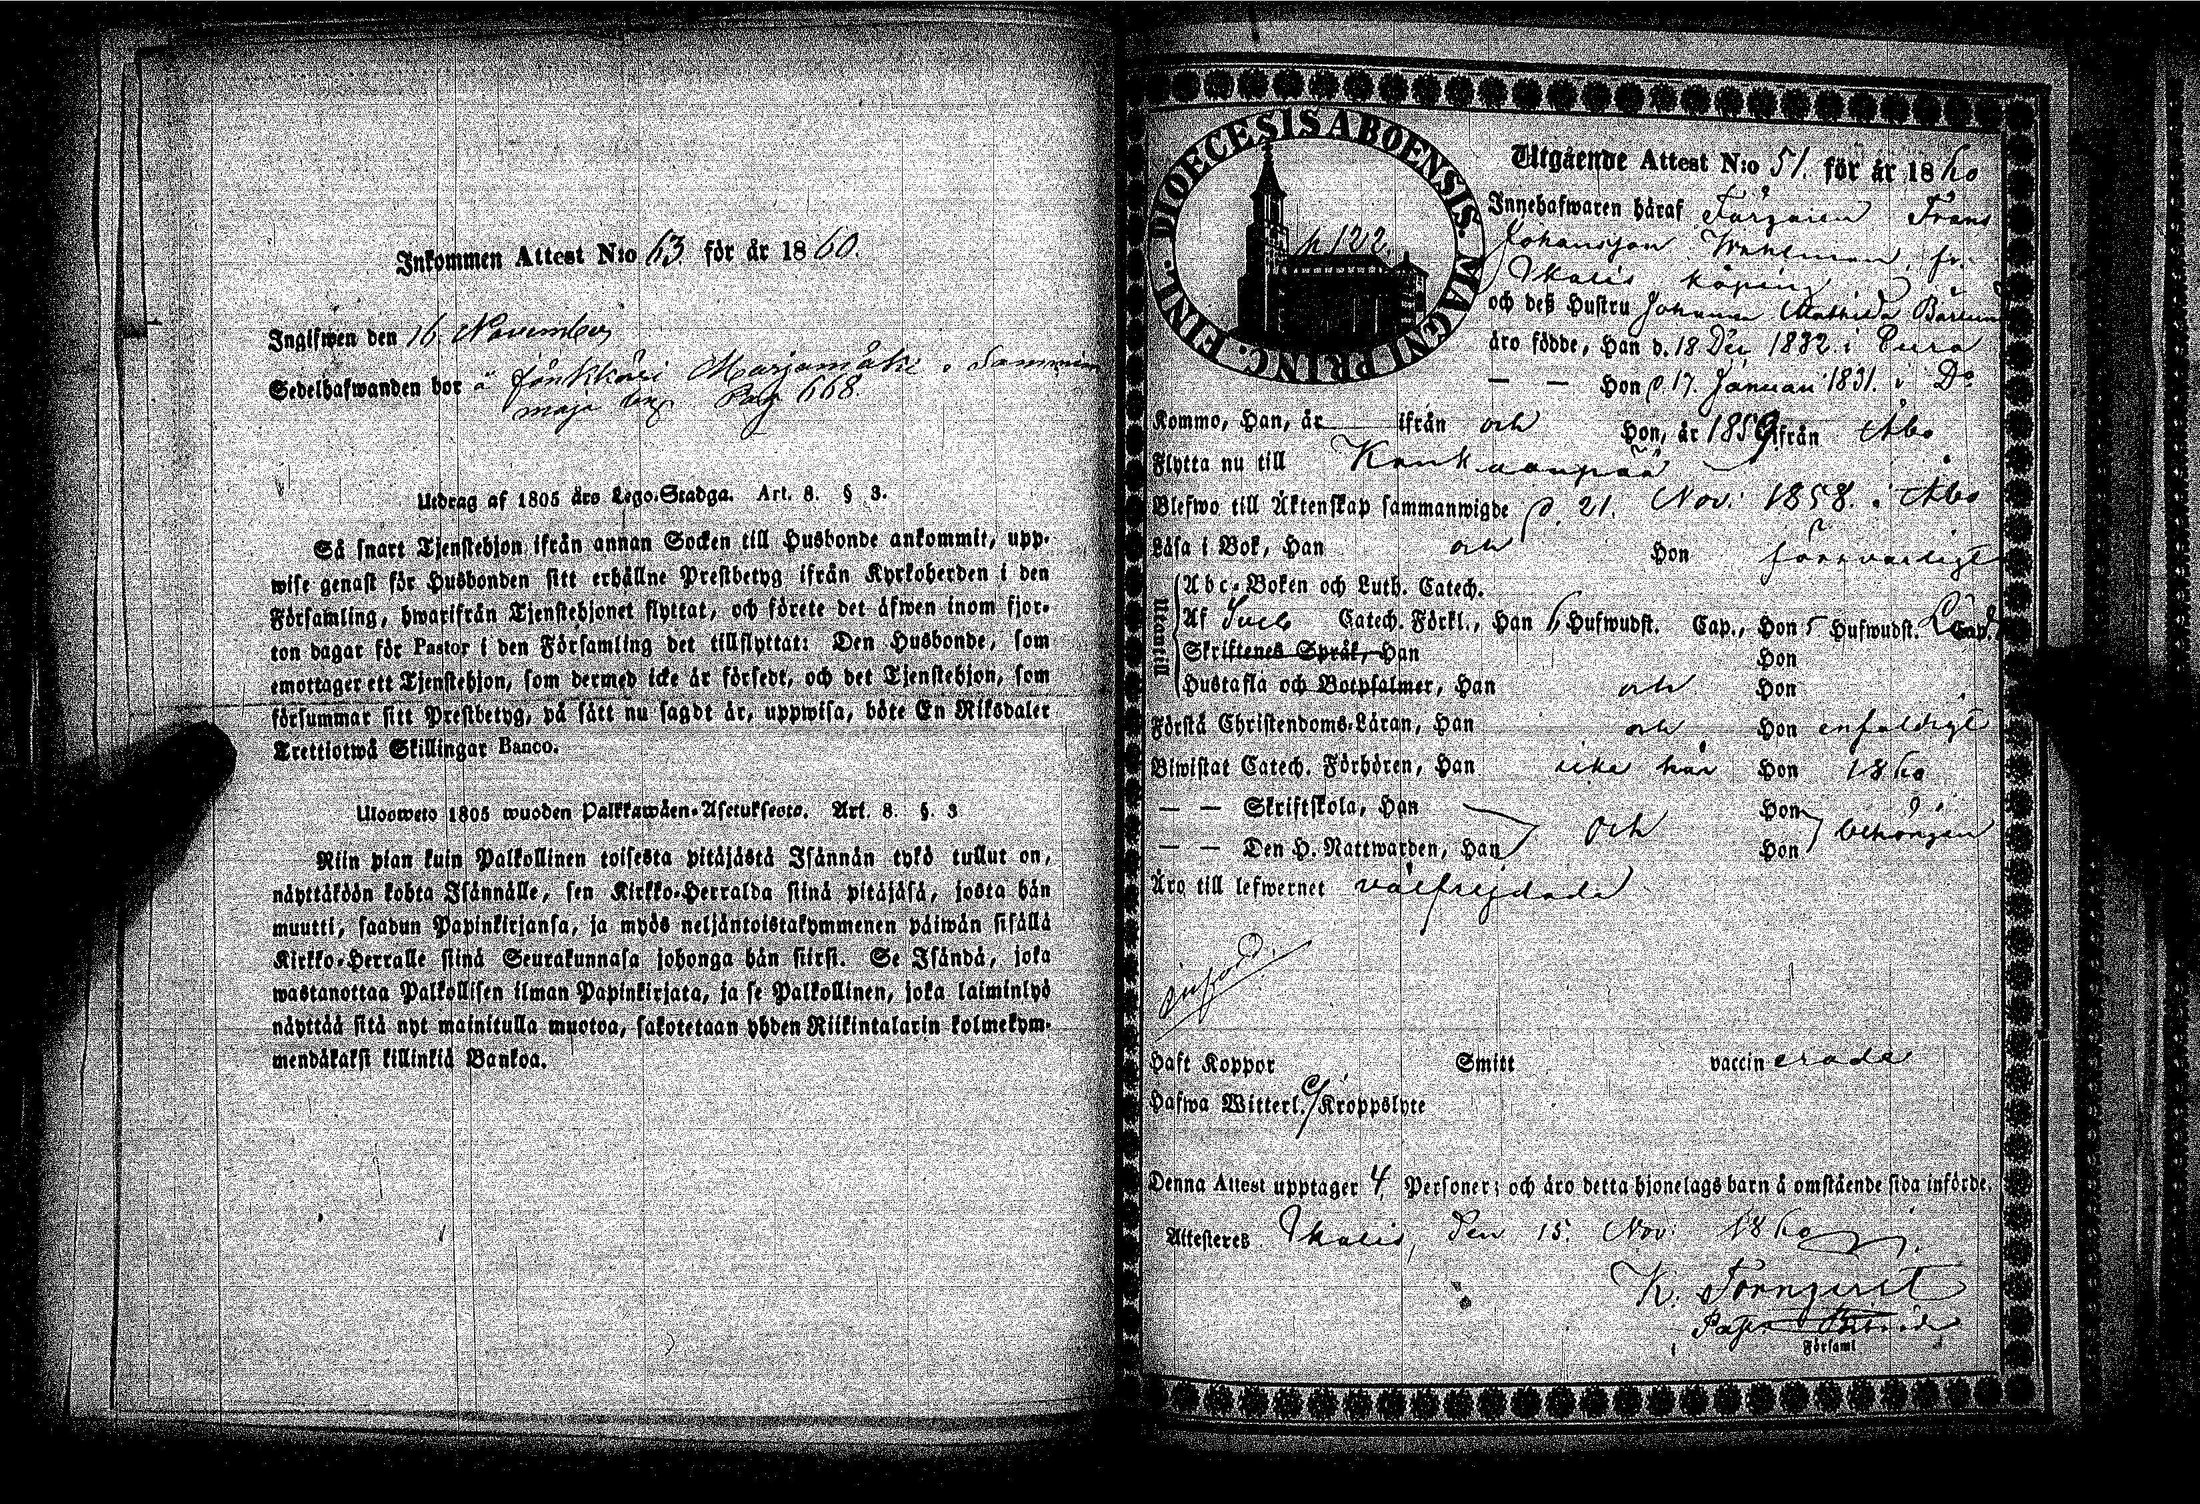 Inkommen Attest N:o 63 för år 1860.
Ingifwen den 16. November
Sedelhafwanden bor å Jönkkäri Marjamäki
Pag 668.
Utdrag af 1805 års Lego-Stadga. Art. 8. § 3.
Så snart Tjenstehjon ifrån annan Socken till Husbonde ankommit, upp-
wise genast för Husbonden sitt erhållne Prestbetyg ifrån Kyrkoherden i den
Församling, hwarifrån Tjenstehjonet flyttat, och förete det äfwen inom fjor-
ton dagar för Pastor i den Församling det tillflyttat: Den Husbonde, som
emottager ett Tjenstehjon, som dermed icke är försedt, och det Tjenstehjon, som
försummar sitt Prestbetyg, på sätt nu sagdt är, uppwisa, böte En Riksdaler
Trettiotwå Skillingar Banco.
Ulosweto 1805 wuoden Palkkawäen-Asetuksesta. Art. 8. §. 3
Niin pian kuin Palkollinen toisesta pitäjästä Isännän tykö tullut on,
näyttäköön kohta Isännälle, sen Kirkko-Herralda siinä pitäjäsä, josta hän
muutti, saadun Papinkirjansa, ja myös neljäntoistakymmenen päiwän sisällä
Kirkko-Herralle siinä Seurakunnasa johonga hän siirsi. Se Isändä, joka
wastanottaa Palkollisen ilman Papinkirjata, ja se Palkollinen, joka laiminlyö
näyttää sitä nyt mainitulla muotoa, sakotetaan yhden Riikintalarin kolmekym-
mendäkaksi killinkiä Bankoa.
DIOECESIS ABOENSIS. MAGNI PRINC. FINL.
p 122.
Utgående Attest N:o 51. för år 1860
Innehafwaren häraf Färgaren Frans
Johansson Wahlman, fr.
Ikalis köping
och deß Hustru Johanna Mathilda
äro födde, Han d. 18 Dec 1832. i Eura
— — Hon d. 17. Januari 1831. i Do
Kommo, Han, år ifrån och Hon, år 1859 ifrån Åbo
Flytta nu till Kankaanpää
Blefwo till Äktenskap sammanwigde d. 21. Nov. 1858. i Åbo
Läsa i Bok, Han och Hon försvarligt
Utantill
Abc-Boken och Luth. Catech.
Af Sveb Catech. Förkl., Han 6 Hufwudst. Cap., Hon 5 Hufwudst. Cap.
Skriftenes Språk, Han Hon
Hustafla och Botpsalmer, Han och Hon
Förstå Christendoms-Läran, Han och Hon enfaldigt
Biwistat Catech. Förhören, Han icke här Hon 1860
— — Skriftskola, Han Hon
och behörigen
— — Den H. Nattwarden, Han Hon
Äro till lefwernet välfrejdade
införd.
Haft Koppor Smitt vaccinerade
Hafwa Witterl. Kroppslyte
Denna Attest upptager 4 Personer; och äro detta hjonelags barn å omstående sida införde.
Attesteres Ikalis, den 15. Nov. 1860
K. Törnqvist
Församl